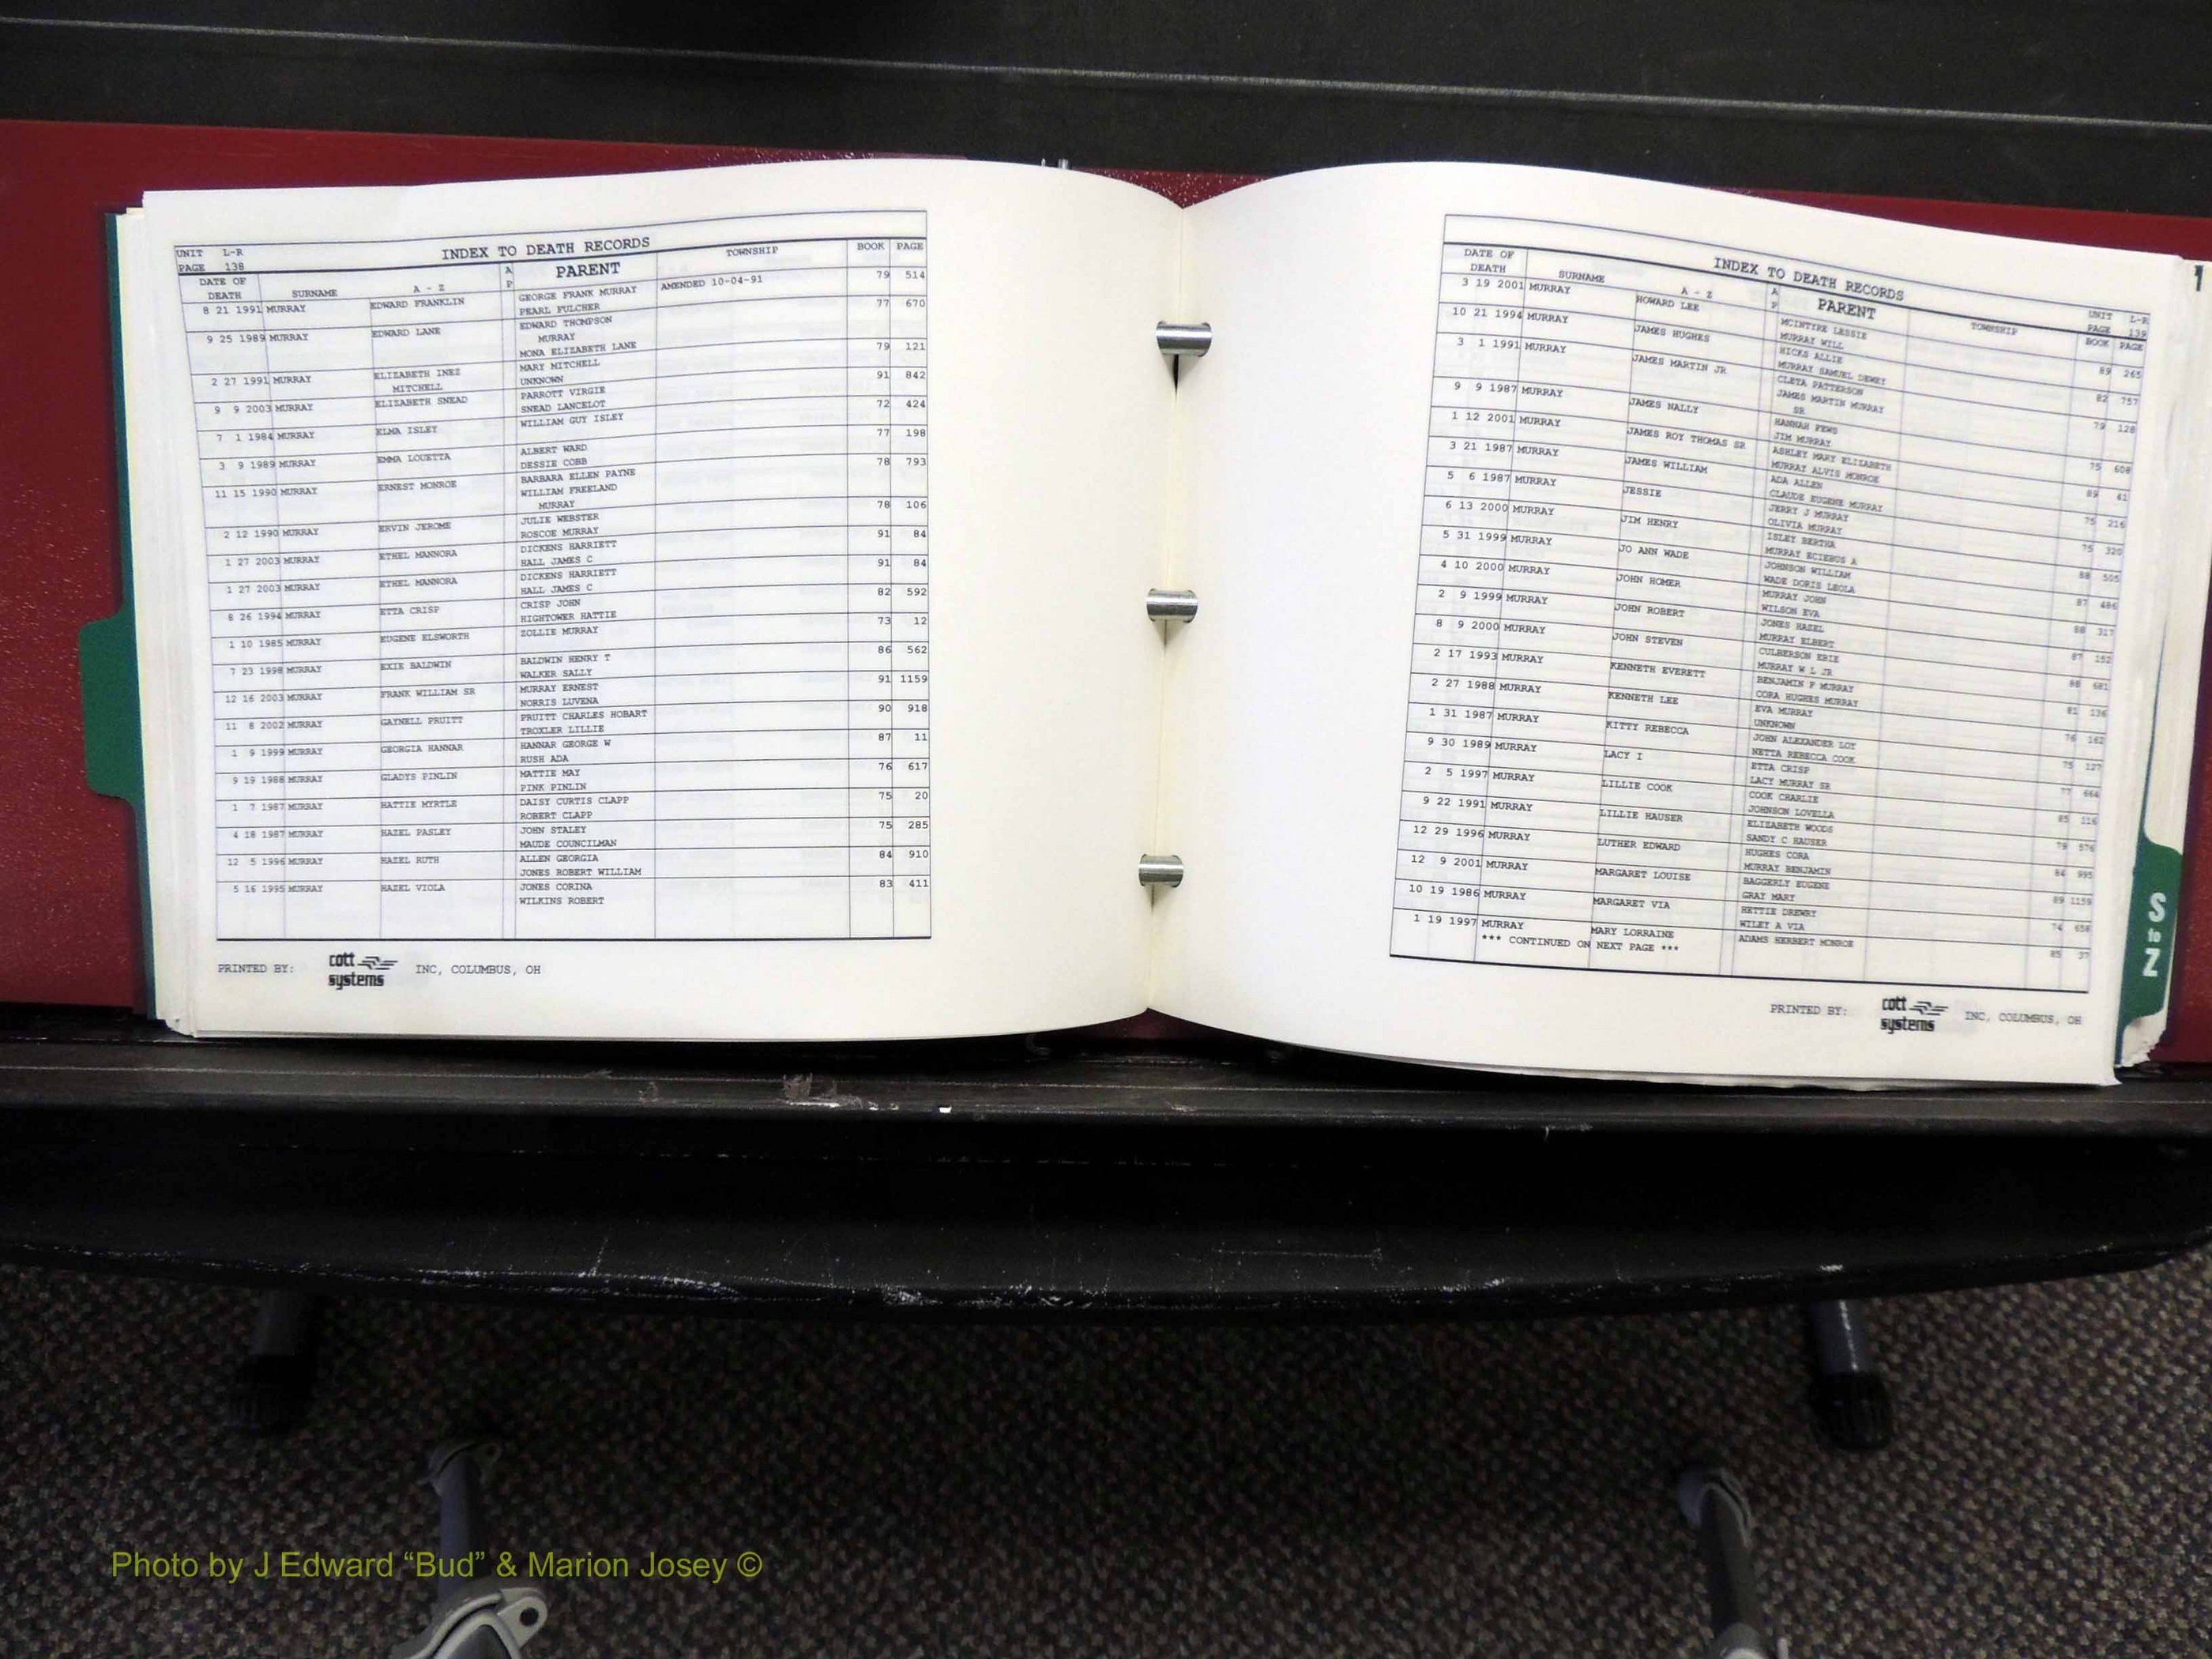 UNIT L-R
PAGE 138
INDEX TO DEATH RECORDS
DATE OF DEATH SURNAME A - Z A P PARENT TOWNSHIP BOOK PAGE
8 21 1991 MURRAY EDWARD FRANKLIN GEORGE FRANK MURRAY AMENDED 10-04-91 79 514
PEARL FULCHER
9 25 1989 MURRAY EDWARD LANE EDWARD THOMPSON 77 670
MURRAY
MONA ELIZABETH LANE
2 27 1991 MURRAY ELIZABETH INEZ MARY MITCHELL 79 121
MITCHELL UNKNOWN
9 9 2003 MURRAY ELIZABETH SNEAD PARROTT VIRGIE 91 842
SNEAD LANCELOT
7 1 1984 MURRAY ELMA ISLEY WILLIAM GUY ISLEY 72 424
3 9 1989 MURRAY EMMA LOUETTA ALBERT WARD 77 198
DESSIE COBB
11 15 1990 MURRAY ERNEST MONROE BARBARA ELLEN PAYNE 78 793
WILLIAM FREELAND
MURRAY
2 12 1990 MURRAY ERVIN JEROME JULIE WEBSTER 78 106
ROSCOE MURRAY
1 27 2003 MURRAY ETHEL MANNORA DICKENS HARRIETT 91 84
HALL JAMES C
1 27 2003 MURRAY ETHEL MANNORA DICKENS HARRIETT 91 84
HALL JAMES C
8 26 1994 MURRAY ETTA CRISP CRISP JOHN 82 592
HIGHTOWER HATTIE
1 10 1985 MURRAY EUGENE ELSWORTH ZOLLIE MURRAY 73 12
7 23 1998 MURRAY EXIE BALDWIN BALDWIN HENRY T 86 562
WALKER SALLY
12 16 2003 MURRAY FRANK WILLIAM SR MURRAY ERNEST 91 1159
NORRIS LUVENA
11 8 2002 MURRAY GAYNELL PRUITT PRUITT CHARLES HOBART 90 918
TROXLER LILLIE
1 9 1999 MURRAY GEORGIA HANNAR HANNAR GEORGE W 87 11
RUSH ADA
9 19 1988 MURRAY GLADYS PINLIN MATTIE MAY 76 617
PINK PINLIN
1 7 1987 MURRAY HATTIE MYRTLE DAISY CURTIS CLAPP 75 20
ROBERT CLAPP
4 18 1987 MURRAY HAZEL PASLEY JOHN STALEY 75 285
MAUDE COUNCILMAN
12 5 1996 MURRAY HAZEL RUTH ALLEN GEORGIA 84 910
JONES ROBERT WILLIAM
5 16 1995 MURRAY HAZEL VIOLA JONES CORINA 83 411
WILKINS ROBERT
PRINTED BY: cott systems INC, COLUMBUS, OH
INDEX TO DEATH RECORDS
UNIT L-R
PAGE 139
DATE OF DEATH SURNAME A - Z A P PARENT TOWNSHIP BOOK PAGE
3 19 2001 MURRAY HOWARD LEE MCINTYRE LESSIE 89 265
MURRAY WILL
10 21 1994 MURRAY JAMES HUGHES HICKS ALLIE 82 757
MURRAY SAMUEL DEWEY
3 1 1991 MURRAY JAMES MARTIN JR CLETA PATTERSON 79 128
JAMES MARTIN MURRAY
SR
9 9 1987 MURRAY JAMES NALLY HANNAH FEWS 75 608
JIM MURRAY
1 12 2001 MURRAY JAMES ROY THOMAS SR ASHLEY MARY ELIZABETH 89 41
MURRAY ALVIS MONROE
3 21 1987 MURRAY JAMES WILLIAM ADA ALLEN 75 216
CLAUDE EUGENE MURRAY
5 6 1987 MURRAY JESSIE JERRY J MURRAY 75 320
OLIVIA MURRAY
6 13 2000 MURRAY JIM HENRY ISLEY BERTHA 88 505
MURRAY ECIEBUS A
5 31 1999 MURRAY JO ANN WADE JOHNSON WILLIAM 87 486
WADE DORIS LEOLA
4 10 2000 MURRAY JOHN HOMER MURRAY JOHN 88 317
WILSON EVA
2 9 1999 MURRAY JOHN ROBERT JONES HAZEL 87 152
MURRAY ELBERT
8 9 2000 MURRAY JOHN STEVEN CULBERSON ERIE 88 681
MURRAY W L JR
2 17 1993 MURRAY KENNETH EVERETT BENJAMIN F MURRAY 81 136
CORA HUGHES MURRAY
2 27 1988 MURRAY KENNETH LEE EVA MURRAY 76 162
UNKNOWN
1 31 1987 MURRAY KITTY REBECCA JOHN ALEXANDER LOY 75 127
NETTA REBECCA COOK
9 30 1989 MURRAY LACY I ETTA CRISP 77 664
LACY MURRAY SR
2 5 1997 MURRAY LILLIE COOK COOK CHARLIE 85 116
JOHNSON LOVELLA
9 22 1991 MURRAY LILLIE HAUSER ELIZABETH WOODS 79 576
SANDY C HAUSER
12 29 1996 MURRAY LUTHER EDWARD HUGHES CORA 84 995
MURRAY BENJAMIN
12 9 2001 MURRAY MARGARET LOUISE BAGGERLY EUGENE 89 1159
GRAY MARY
10 19 1986 MURRAY MARGARET VIA HETTIE DREWRY 74 658
WILEY A VIA
1 19 1997 MURRAY MARY LORRAINE ADAMS HERBERT MONROE 85 37
*** CONTINUED ON NEXT PAGE ***
PRINTED BY: cott systems INC, COLUMBUS, OH
1
S to Z
Photo by J Edward “Bud” & Marion Josey ©